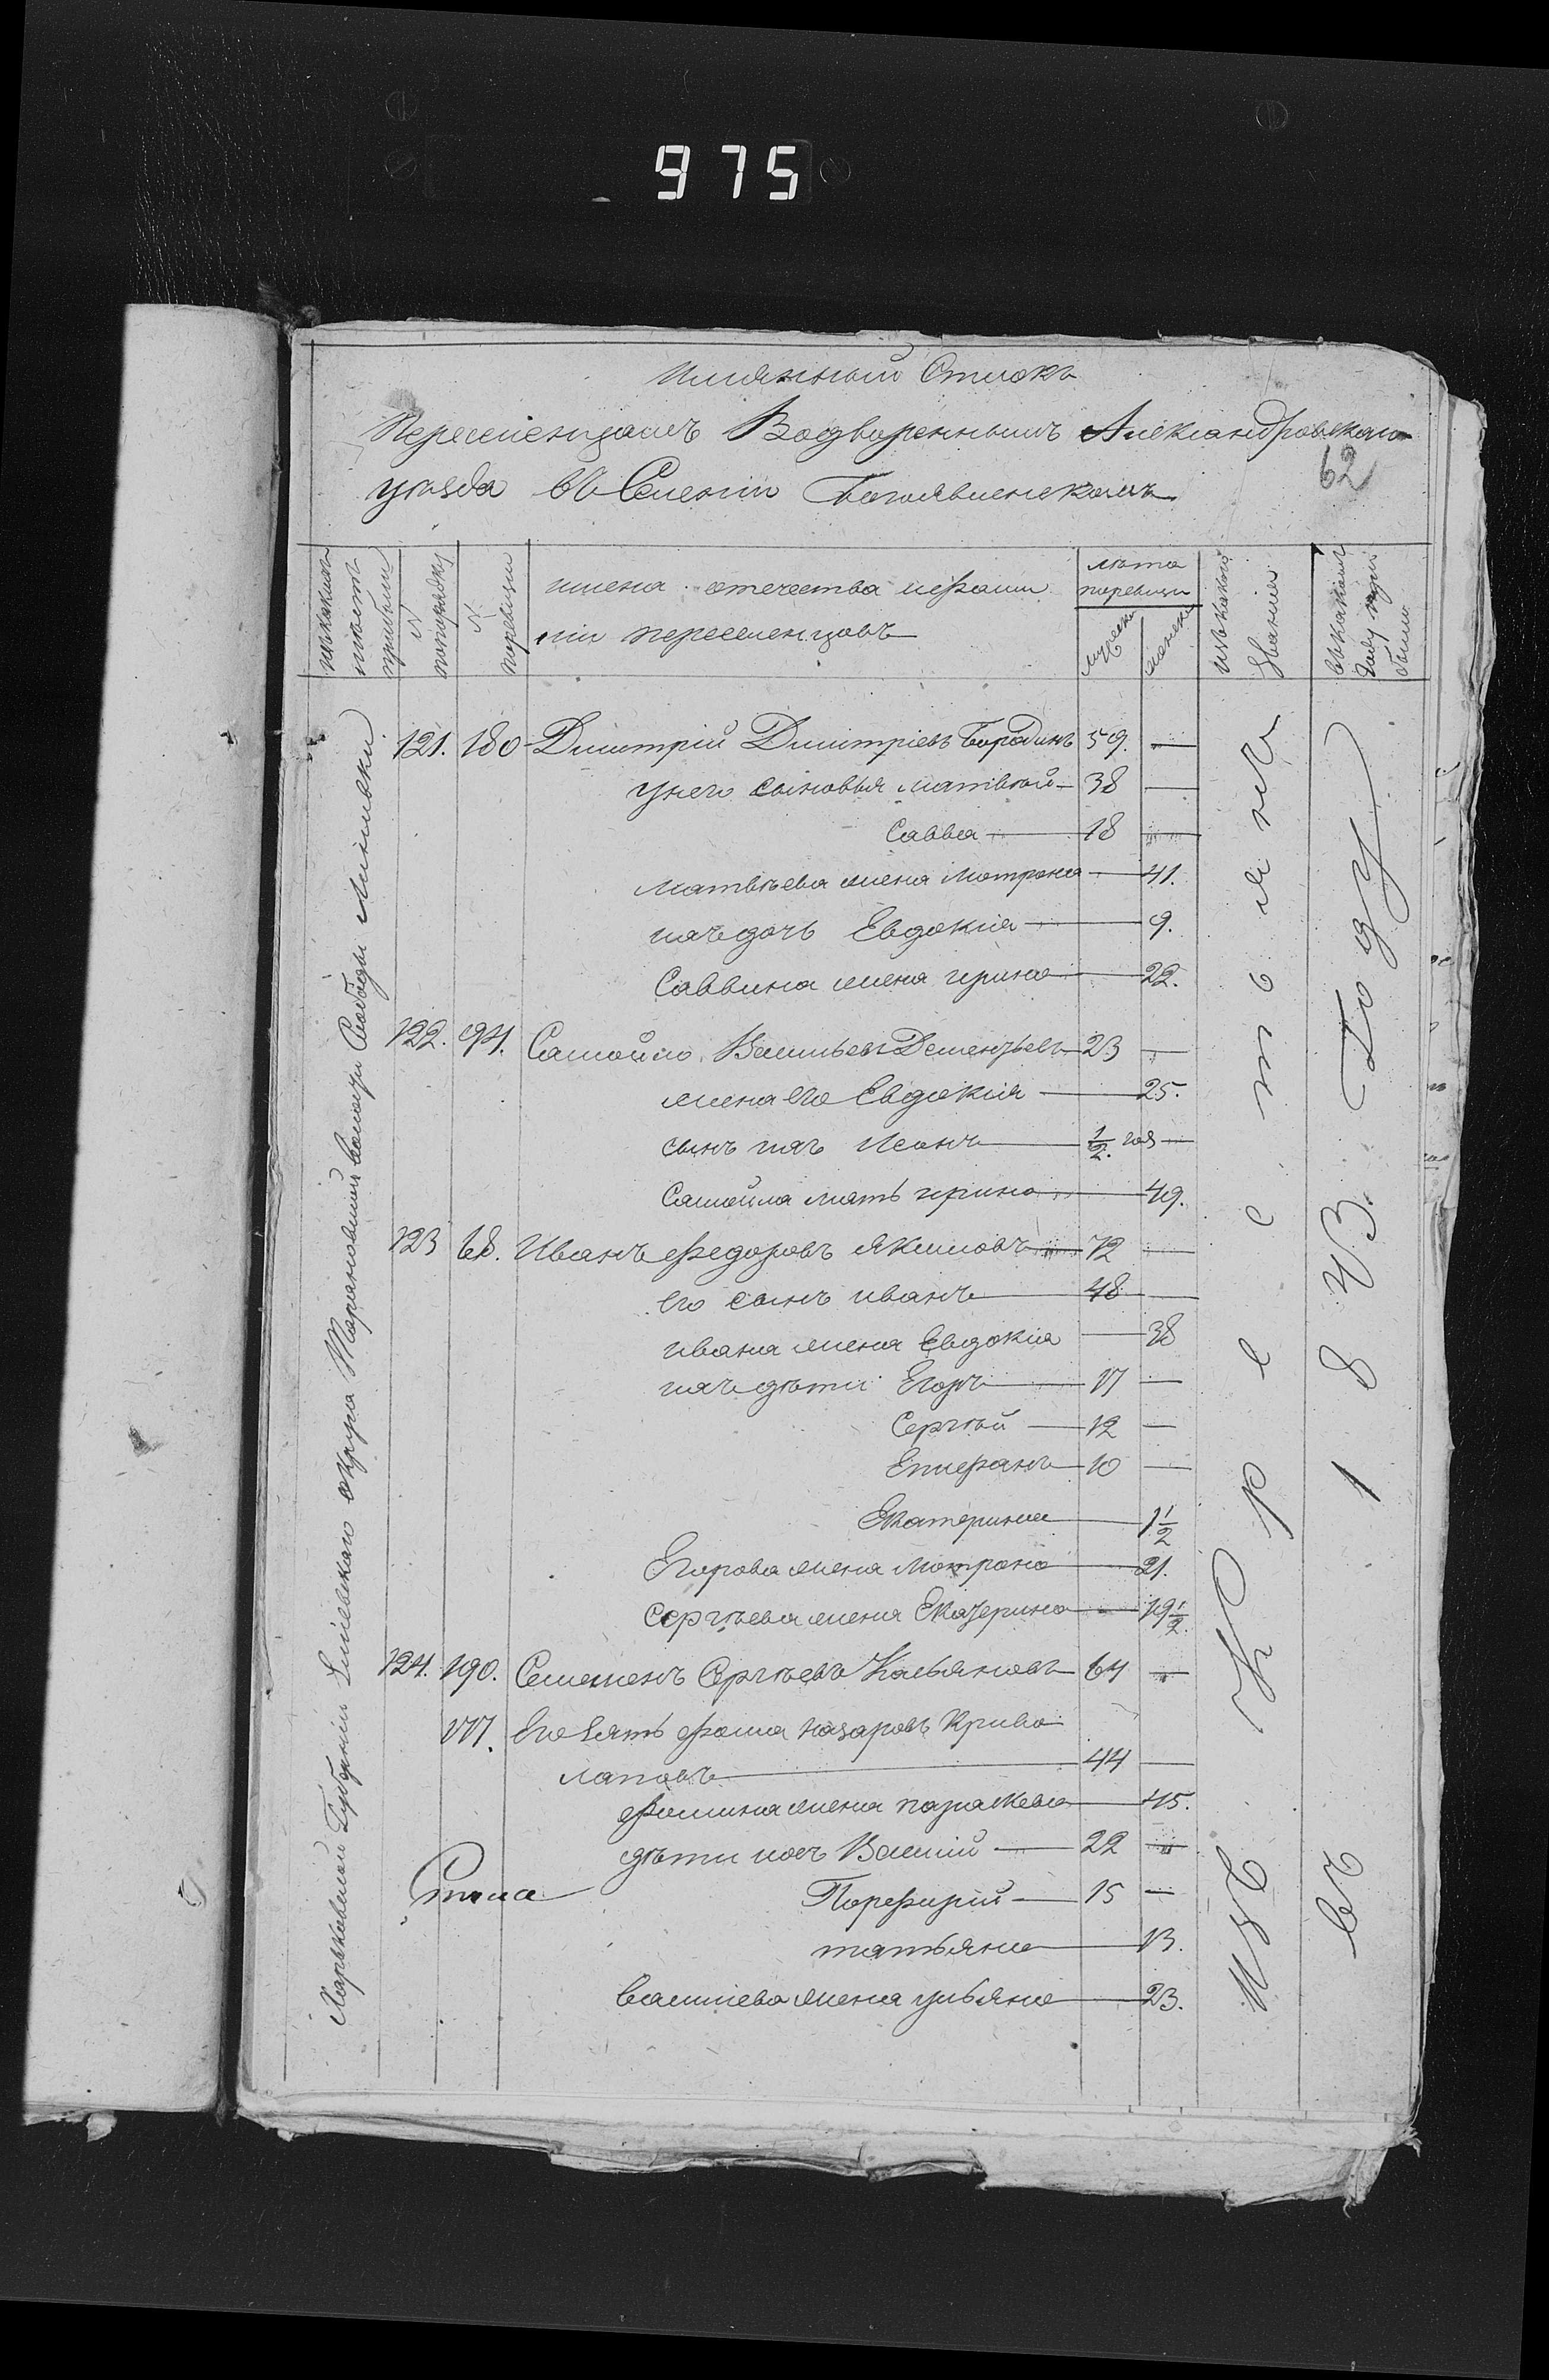 975
Имянный Списокъ
Переселенцамъ Водвореннымъ Александровскаго
уѣзда въ Селеніи Богоявленскомъ
62
изъ какихъ мѣстъ прибыли
№ попорядку
№ ревизіи
имена отечества ифами
ліи переселенцовъ
лѣта
ревизіи
мужеска
женска
изъ какого званія
въ какомъ году прибыли
Харьковской Губерніи Зміевскаго округа Тарановской Волости Слободы Лиманки
121. 180 Димитрій Димитріевъ Бородинъ 59. —
унего сыновья Матвѣй — 38 —
Савва — 18 —
Матвѣева жена Мотрона — 41.
ихъ дочь Евдокія — 9.
Саввина жена ирина — 22.
122. 94. Самойло Васильевъ Дементьевъ — 23 —
жена его Евдокія — 25.
сынъ ихъ Исакъ — 1/2 год —
Самойла мать ирина — 49.
123 68. Иванъ Федоровъ Якимовъ — 72 —
его сынъ иванъ — 48 —
ивана жена Евдокія — 38
ихъ дѣти Егоръ — 17 —
Сергѣй — 12 —
Епифанъ — 10 —
Екатерина — 1 1/2
Егорова жена Мотрона — 21.
Сергѣева жена Екатерина — 19 1/2.
124. 190. Семенъ Сергѣевъ Касьяновъ — 64 —
177. Его зять Фома Назаровъ Криво
лаповъ — 44 —
Фомина жена параскева — 45.
дѣти ихъ Василій — 22 —
Порфирій — 15 —
татьяна — 13.
Василіева жена ульяна — 23.
Изъ Крестьянъ
въ 1843. Году